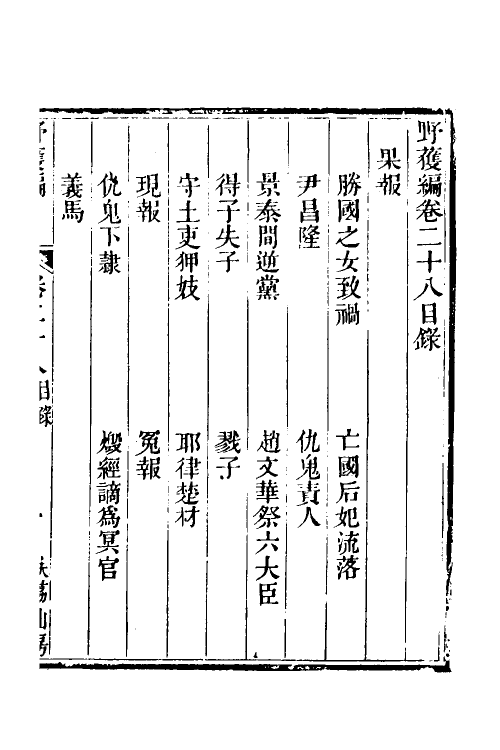 野獲編卷二十八目錄
果報
勝國之女致禍　亡國后妃流落
尹昌隆　仇鬼責人
景泰間逆黨　趙文華祭六大臣
得子失子　戮子
守土吏狎妓　耶律楚材
現報　冤報
仇鬼下隷　燬經謫爲冥官
義馬
野獲編　卷二十八目錄　一　扶荔山房